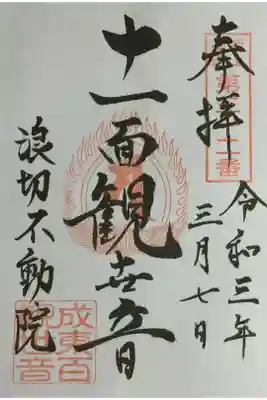 奉拝
令和三年
三月七日
十一面観世音
浪切不動院
成東百
観音